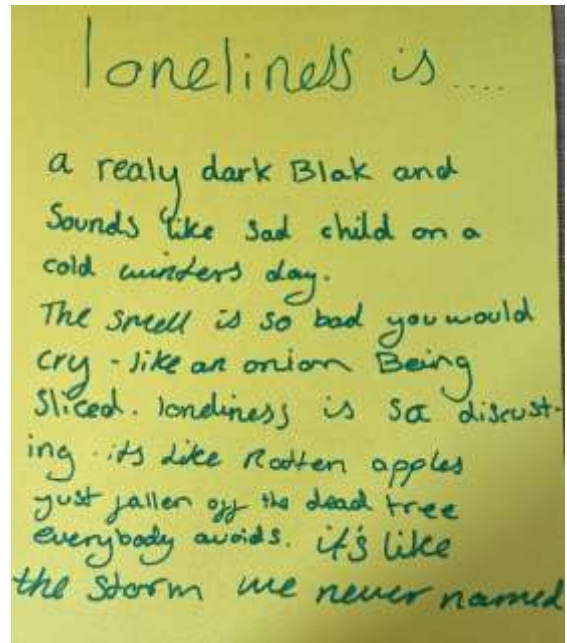 loneliness is ....
a realy dark Blak and
Sounds like sad child on a
cold winters day.
The smell is so bad you would
cry - like an onion Being
Sliced. loneliness is so discust-
ing. its like Rotten apples
just fallen off the dead tree
everybody avoids. it's like
the storm we never named